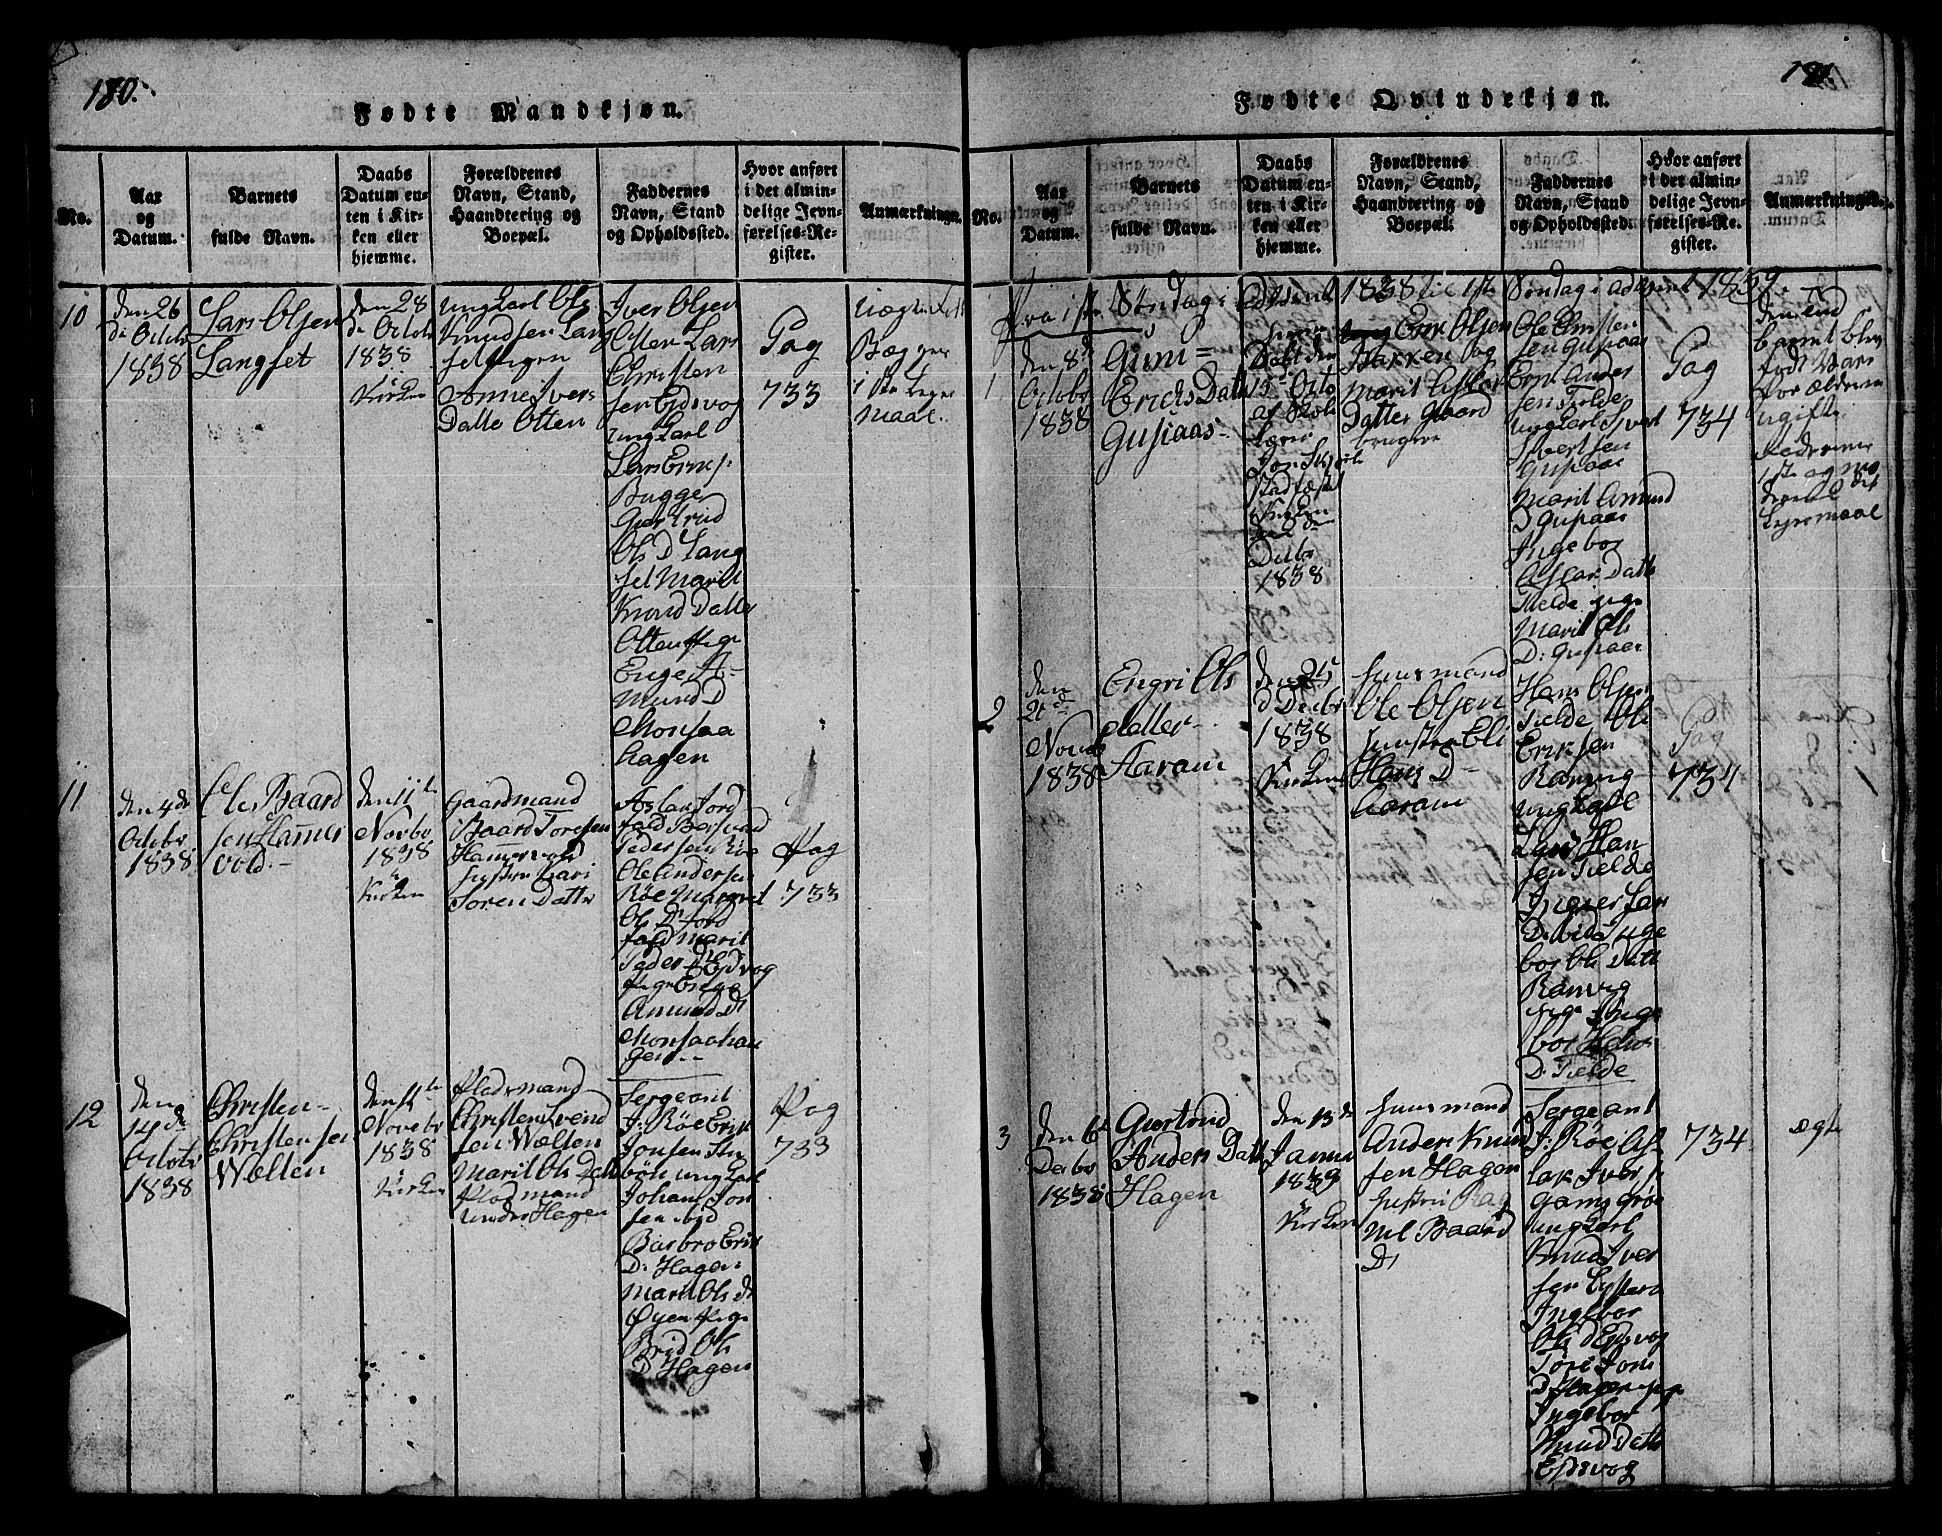 180.
Fødte Mandkjøn.
No.
Aar
og
Datum.
Barnets
fulde Navn.
Daabs
Datum en-
ten i Kir-
ken eller
hjemme.
Forældrenes
Navn, Stand,
Haandtering og
Boepæl.
Faddernes
Navn, Stand
og Opholdssted.
Hvor anført
i det almin-
delige Jevn-
førelses-Re-
gister.
Anmærkninger.
10
den 26
d: Octob
1838
Lars Olsen
Langset
den 28
d: Octob
1838
Kirken
ungkarl Ole
Knudsen Lang
set
Anne Ivers
Datte Otten
Iver Olsen
Otten Lars
Christen
sen Eidsvog
ungkarl
Lars Ericks:
Bugge
Giertrud
Ols D Lang
set Marit
Knud Datter
Otten pige
Enge A-
mund D
Monsaa
hagen
Pag
733
uægte
Begges
1ste Leyer
maal.
11
den 4de
Octobr
1838
Ole Baard
sen Hammer
vold.-
den 11te
Novbr
1838
Kirken
Gaardmand
Baard Toresen
Hammervold
Hustru Kari
Soren Datte
Aslak Jord
fald
Peder sen Röe
Ole Andersen
Röe Margret
Ols D Jord
fald Marit
Peder D Eidsvog
pige Enge
Amund D
Monsaahau
gen --
Pag
733
12
den
14 de
Octobr
1838
Christen-
Christensen
Wælten
den 11te
Novebr
1838
Kirken
Pladsmand
Christen Svend
sen Wælten
Marit Ols Datte
Pladsmand
under Hagen
Sergeant
J: Röe Erik
Jonsen Stu
böe ungkarl
Johans Jon
sen ibid
Barbro Erik
D: Hagen
Marit Ols D
Øyen pige
Brid Ols
D Hagen
Pag
733
181.
Fødte Qvindekjøn.
No.
Aar
og
Datum.
Barnets
fulde Navn.
Daabs
Datum en-
ten i Kir-
ken eller
hjemme.
Forældrenes
Navn, Stand,
Haandtering og
Boepæl.
Faddernes
Navn, Stand
og Opholdssted.
Hvor anført
i det almin-
delige Jevn-
førelses-Re-
gister.
Anmærkninger.
Fra 1ste Söndag i Advent 1838 til 1ste Söndag i Advent 1839.
1
den 8de
Octobr
1838
Guni=
Erichs Datte
Gusiaas
Döbt den
15 Octo
af Skole
Lærer
Jon
Stadfæstet
Kirken
den 2den
Decbr
1838
Erik Olsen
Bakken og
Marit Aslak
Datter Gaard
brugere
Ole Christen
sen Gusiaas
Erik Anders
sen Tielde
ungkarl Sivert
Sivertsen
Gusiaas
Marit Amund
D Gusiaas
Ingebor
Aslak Datte
Tielde pige
Marit Ols
D: Gusiaas
Pag
734
barnet blev
født Vare
Foreldrene
ugifte.
Faderens
1ste og mo
derens 2det
Leyermaal
2
den
21 d
Novbr
1838
Engri Ols
datter
Aaram
den 25
d Decbr
1838
Kirken
Huusmand
Ole Olsen
Hustru Eli
Hans D-
Aaram
Hans Olsen
Tielde Ole
Eriksen
Ranvig
ungkarl
Lars Han
sen Tielde
Inger Lar
D: ibid Inge
bor Ols Datte
Ranvig
pige Inge
bor Hans
D. Tielde
Pag
734
3
den 6te
Decbr
1838
Giertrud
Anders Datte
Hagen
den 13 de
Janua
1839
Kirken
Huusmand
Anders Knud
sen Hagen
Hustru Rag
nil Baard
D:
Sergeant
J: Röe As
lak Ivers
Gamsgröe
ungkarl
Knud Iver
sen Lysteru
Ingebor
Ols D Eidsvog
Tore Jons
D Hagen pige
Ingebor
Knud Datte
Eidsvog
734
ægte